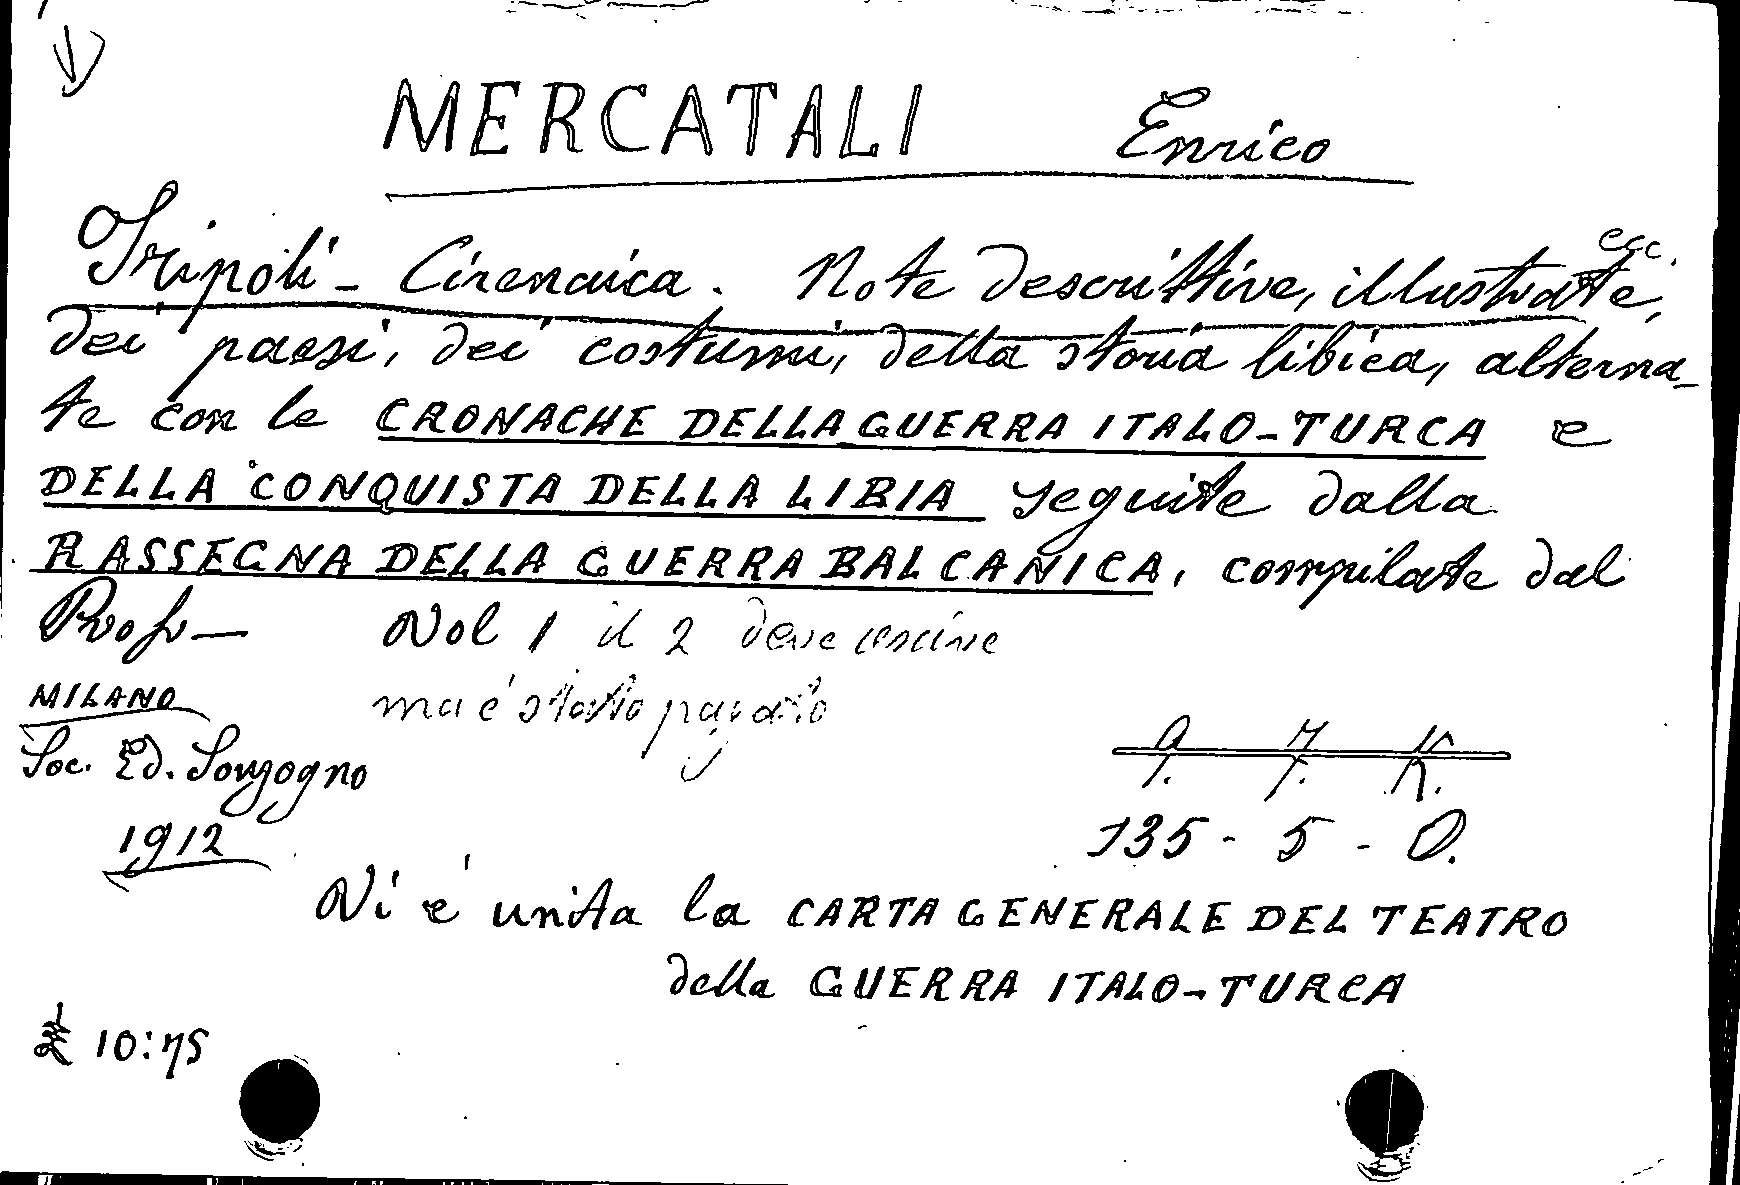 MERCATALI Enrico
Tripoli - Cirenaica. Note descrittive, illustrate, ecc.
dei paesi, dei costumi, della storia libica, alterna-
te con le CRONACHE DELLA GUERRA ITALO-TURCA e
DELLA CONQUISTA DELLA LIBIA seguite dalla
RASSEGNA DELLA GUERRA BALCANICA, compilate dal
Prof. — Vol 1 il 2 deve uscire
ma è stato pagato
MILANO
Soc. Ed. Sonzogno
1912
135 - 5 - O.
Vi è unita la CARTA GENERALE DEL TEATRO
della GUERRA ITALO-TURCA
£ 10:75